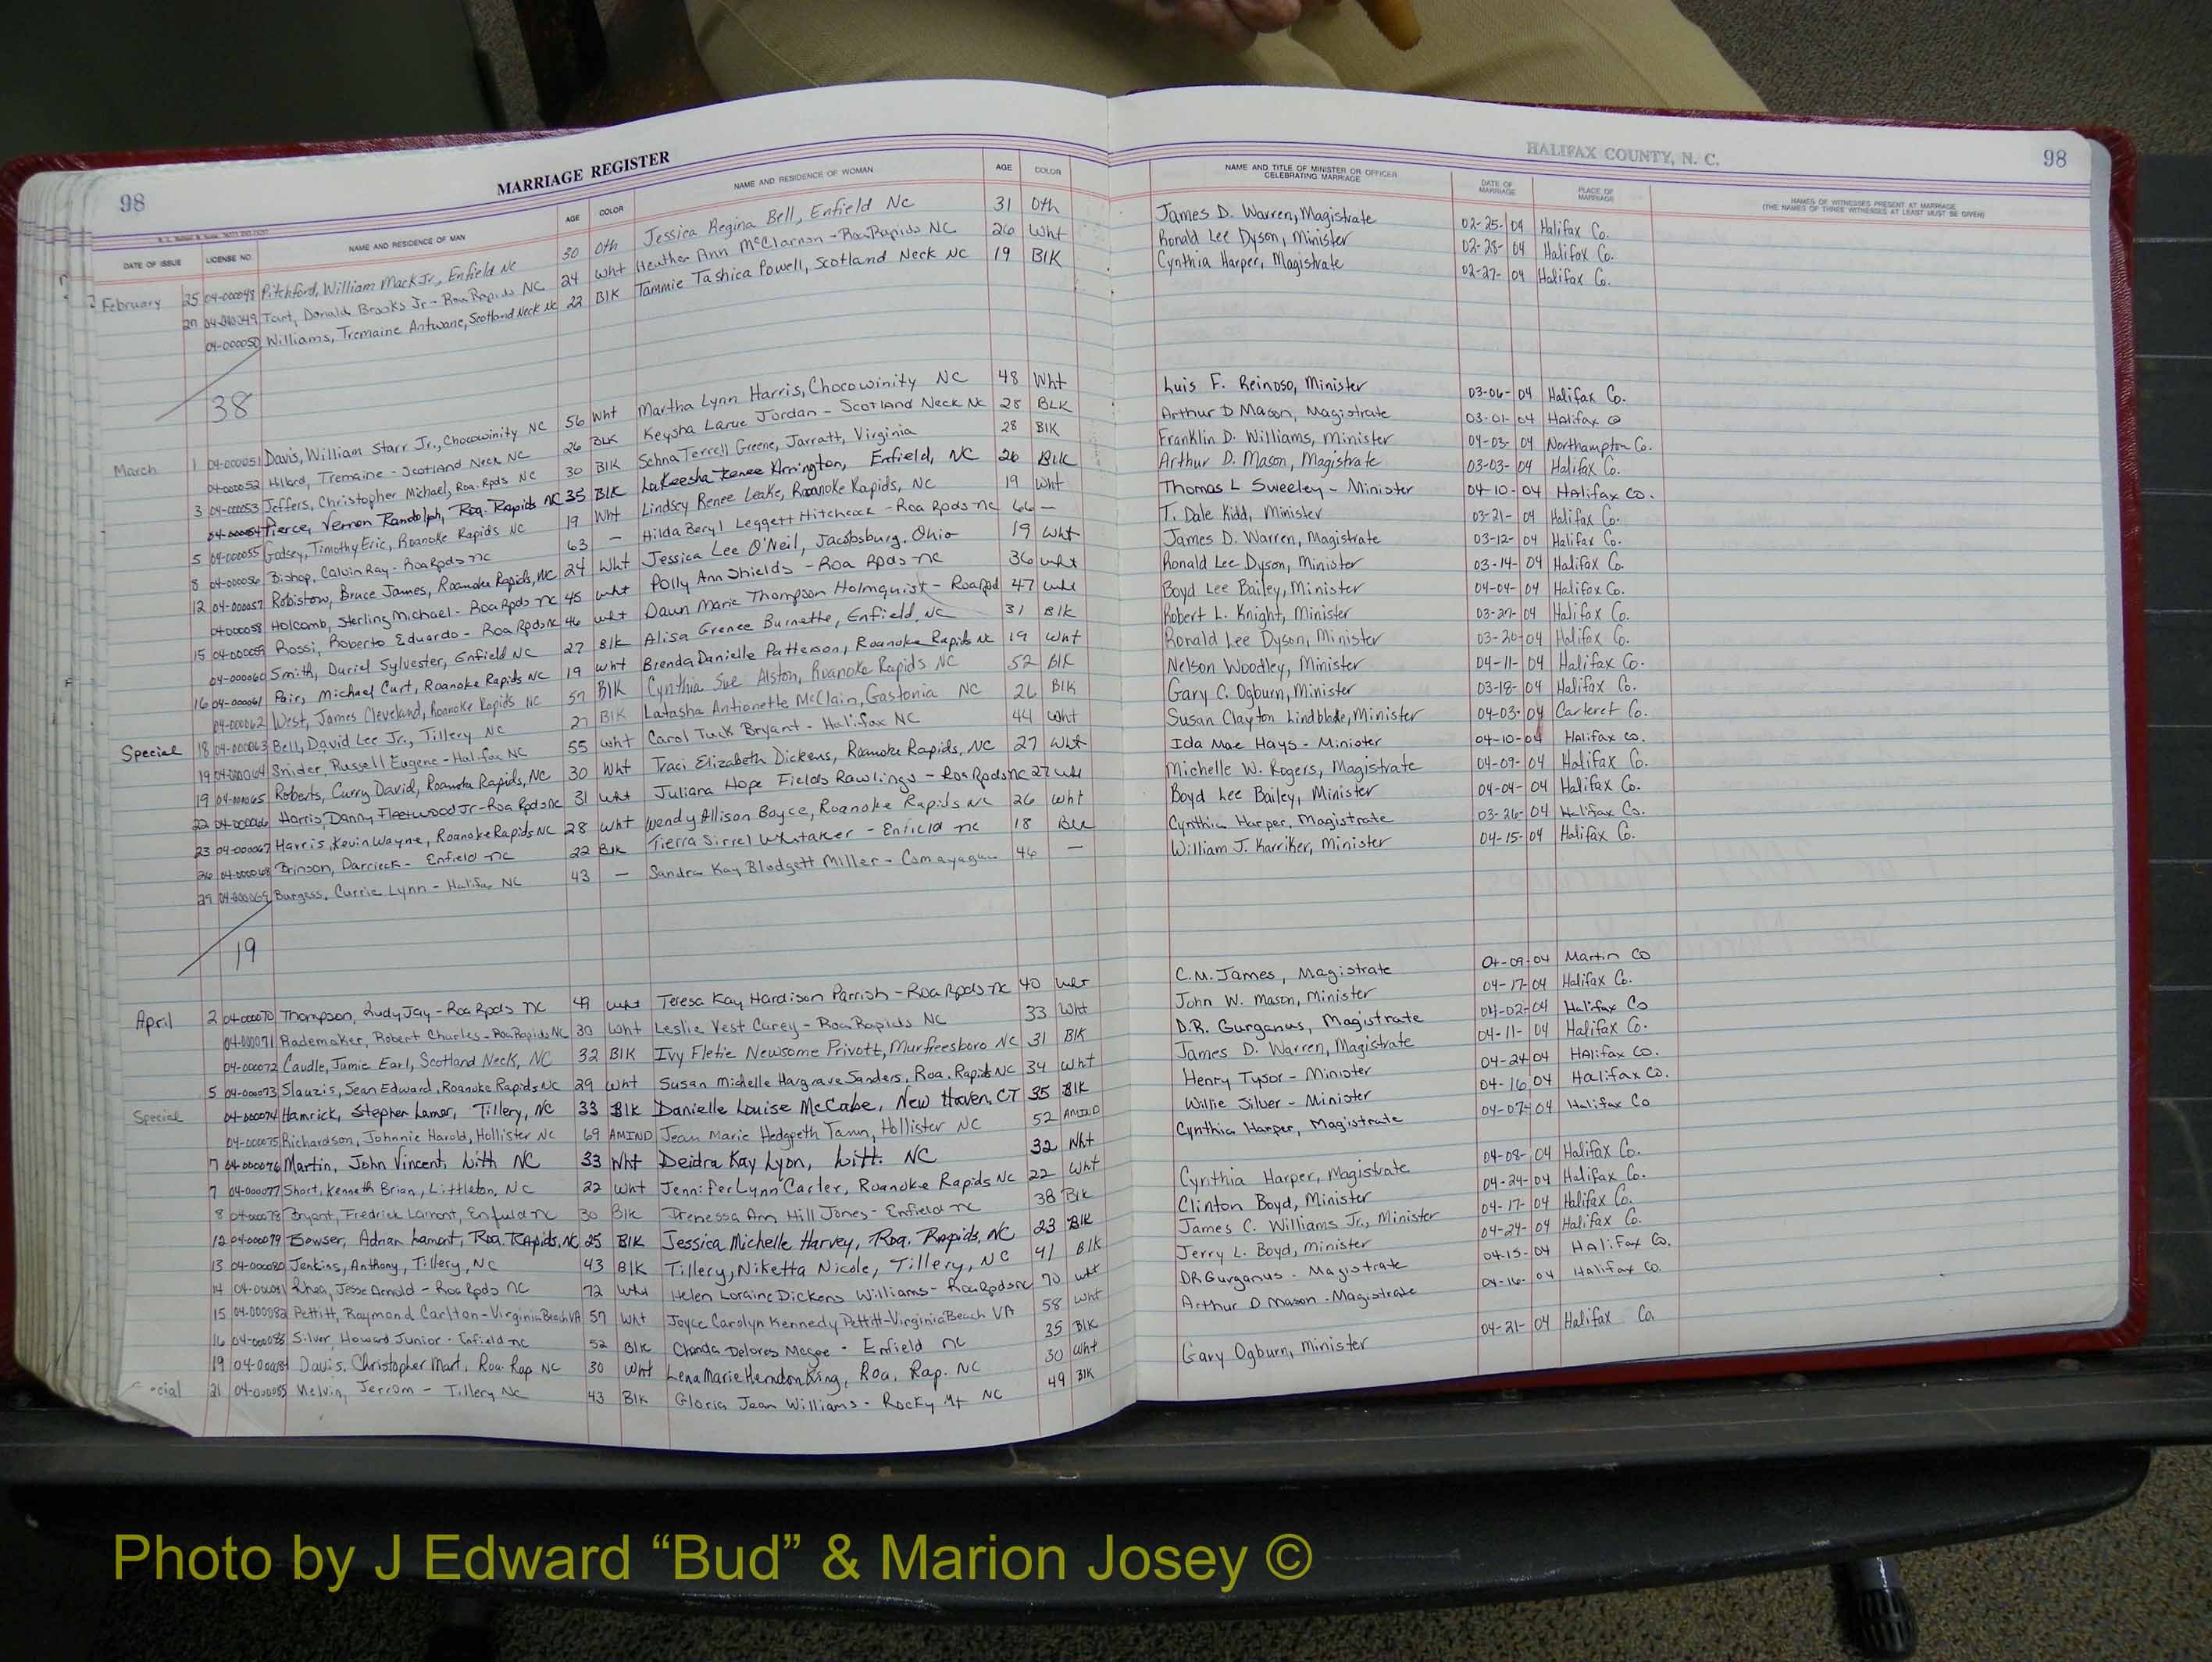 98 MARRIAGE REGISTER HALIFAX COUNTY, N. C. 98
DATE OF ISSUE LICENSE NO. NAME AND RESIDENCE OF MAN AGE COLOR NAME AND RESIDENCE OF WOMAN AGE COLOR NAME AND TITLE OF MINISTER OR OFFICER CELEBRATING MARRIAGE DATE OF MARRIAGE PLACE OF MARRIAGE NAMES OF WITNESSES PRESENT AT MARRIAGE (THE NAMES OF THREE WITNESSES AT LEAST MUST BE GIVEN)
February 25 04-000048 Pitchford, William Mack Jr., Enfield NC 30 Oth Jessica Regina Bell, Enfield NC 31 Oth James D. Warren, Magistrate 02-25-04 Halifax Co.
27 04-000049 Tart, Donald Brooks Jr - Roa Rapids NC 24 Wht Heather Ann McClarnon - Roa Rapids NC 26 Wht Ronald Lee Dyson, Minister 02-28-04 Halifax Co.
04-000050 Williams, Tremaine Antwane, Scotland Neck NC 22 Blk Tammie Tashica Powell, Scotland Neck NC 19 Blk Cynthia Harper, Magistrate 02-27-04 Halifax Co.
38
March 1 04-000051 Davis, William Starr Jr., Chocowinity NC 56 Wht Martha Lynn Harris, Chocowinity NC 48 Wht Luis F. Reinoso, Minister 03-06-04 Halifax Co.
04-000052 Tremaine - Scotland Neck NC 26 BLK Keysha Larue Jordan - Scotland Neck NC 28 BLK Arthur D Mason, Magistrate 03-01-04 Halifax Co
3 04-000053 Jeffers, Christopher Michael, Roa. Rpds NC 30 Blk Terrell Greene, Jarratt, Virginia 28 Blk Franklin D. Williams, Minister 04-03-04 Northampton Co.
04-000054 Pierce, Vernon Randolph, Roa. Rapids NC 35 Blk LaKeesha Renee Arrington, Enfield, NC 26 Blk Arthur D. Mason, Magistrate 03-03-04 Halifax Co.
5 04-000055 Timothy Eric, Roanoke Rapids NC 19 Wht Lindsey Renee Leake, Roanoke Rapids, NC 19 Wht Thomas L Sweeley - Minister 04-10-04 Halifax Co.
8 04-000056 Bishop, Calvin Ray - Roa Rpds NC 63 — Hilda Beryl Leggett Hitchcock - Roa Rpds NC 66 — T. Dale Kidd, Minister 03-21-04 Halifax Co.
12 04-000057 Robistow, Bruce James, Roanoke Rapids, NC 24 Wht Jessica Lee O'Neil, Jacobsburg, Ohio 19 Wht James D. Warren, Magistrate 03-12-04 Halifax Co.
04-000058 Holcomb, Sterling Michael - Roa Rpds NC 45 Wht Polly Ann Shields - Roa Rpds NC 36 Wht Ronald Lee Dyson, Minister 03-14-04 Halifax Co.
15 04-000059 Rossi, Roberto Eduardo - Roa Rpds NC 46 Wht Dawn Marie Thompson Holmquist - Roa Rpd 47 Wht Boyd Lee Bailey, Minister 04-04-04 Halifax Co.
04-000060 Smith, Sylvester, Enfield NC 27 Blk Alisa Grenee Burnette, Enfield, NC 31 Blk Robert L. Knight, Minister 03-27-04 Halifax Co.
16 04-000061 Pair, Michael Curt, Roanoke Rapids NC 19 Wht Brenda Danielle Patterson, Roanoke Rapids NC 19 Wht Ronald Lee Dyson, Minister 03-20-04 Halifax Co.
04-000062 West, James Cleveland, Roanoke Rapids NC 57 Blk Cynthia Sue Alston, Roanoke Rapids NC 52 Blk Nelson Woodley, Minister 04-11-04 Halifax Co.
Special 18 04-000063 Bell, David Lee Jr., Tillery NC 27 Blk Latasha Antionette McClain, Gastonia NC 26 Blk Gary C. Ogburn, Minister 03-18-04 Halifax Co.
19 04-000064 Snider, Russell Eugene - Halifax NC 55 Wht Carol Tuck Bryant - Halifax NC 44 Wht Susan Clayton Lindblade, Minister 04-03-04 Carteret Co.
19 04-000065 Roberts, Curry David, Roanoke Rapids, NC 30 Wht Traci Elizabeth Dickens, Roanoke Rapids, NC 27 Wht Ida Mae Hays - Minister 04-10-04 Halifax Co.
22 04-000066 Harris, Danny Fleetwood Jr - Roa Rpds NC 31 Wht Juliana Hope Fields Rawlings - Roa Rpds NC 27 Wht Michelle W. Rogers, Magistrate 04-09-04 Halifax Co.
23 04-000067 Harris, Kevin Wayne, Roanoke Rapids NC 28 Wht Wendy Allison Boyce, Roanoke Rapids NC 26 Wht Boyd Lee Bailey, Minister 04-04-04 Halifax Co.
26 04-000068 Brinson, Darrieck - Enfield NC 22 Blk Tierra Sirrel Whitaker - Enfield NC 18 Blk Cynthia Harper, Magistrate 03-26-04 Halifax Co.
29 04-000069 Burgess, Currie Lynn - Halifax NC 43 — Sandra Kay Blodgett Miller - Comayagua 46 — William J. Karriker, Minister 04-15-04 Halifax Co.
19
April 2 04-000070 Thompson, Rudy Jay - Roa Rpds NC 49 Wht Teresa Kay Hardison Parrish - Roa Rpds NC 40 Wht C.M. James, Magistrate 04-09-04 Martin Co
04-000071 Rademaker, Robert Charles - Roa Rapids NC 30 Wht Leslie Vest Carey - Roa Rapids NC 33 Wht John W. Mason, Minister 04-17-04 Halifax Co.
04-000072 Caudle, Jamie Earl, Scotland Neck, NC 32 Blk Ivy Fletie Newsome Privott, Murfreesboro NC 31 Blk D.R. Gurganus, Magistrate 04-02-04 Halifax Co
5 04-000073 Slauzis, Sean Edward, Roanoke Rapids NC 29 Wht Susan Michelle Hargrave Sanders, Roa. Rapids NC 34 Wht James D. Warren, Magistrate 04-11-04 Halifax Co.
Special 04-000074 Hamrick, Stephen Lamar, Tillery, NC 33 Blk Danielle Louise McCabe, New Haven, CT 35 Blk Henry Tysor - Minister 04-24-04 Halifax Co.
04-000075 Richardson, Johnnie Harold, Hollister NC 69 AMIND Jean Marie Hedgpeth Tann, Hollister NC 52 AMIND Willie Silver - Minister 04-16-04 Halifax Co.
7 04-000076 Martin, John Vincent, Litt NC 33 Wht Deidra Kay Lyon, Litt. NC 32 Wht Cynthia Harper, Magistrate 04-07-04 Halifax Co
7 04-000077 Short, Kenneth Brian, Littleton, NC 22 Wht Jennifer Lynn Carter, Roanoke Rapids NC 22 Wht Cynthia Harper, Magistrate 04-08-04 Halifax Co.
8 04-000078 Bryant, Fredrick Lamont, Enfield NC 30 Blk Trenessa Ann Hill Jones - Enfield NC 38 Blk Clinton Boyd, Minister 04-24-04 Halifax Co.
12 04-000079 Bowser, Adrian Lamont, Roa. Rapids, NC 25 Blk Jessica Michelle Harvey, Roa. Rapids, NC 23 Blk James C. Williams Jr., Minister 04-17-04 Halifax Co.
13 04-000080 Jenkins, Anthony, Tillery, NC 43 Blk Tillery, Niketta Nicole, Tillery, NC 41 Blk Jerry L. Boyd, Minister 04-24-04 Halifax Co.
14 04-000081 Rhea, Jesse Arnold - Roa Rpds NC 72 Wht Helen Loraine Dickens Williams - Roa Rpds NC 70 Wht DR Gurganus - Magistrate 04-15-04 Halifax Co.
15 04-000082 Pettitt, Raymond Carlton - Virginia Beach VA 57 Wht Joyce Carolyn Kennedy Pettitt - Virginia Beach VA 58 Wht Arthur D Mason - Magistrate 04-16-04 Halifax Co
16 04-000083 Silver, Howard Junior - Enfield NC 52 Blk Chanda Delores McGee - Enfield NC 35 Blk
19 04-000084 Davis, Christopher Mart, Roa. Rap NC 30 Wht Lena Marie Herndon King, Roa. Rap. NC 30 Wht
21 04-000085 Melvin, Jerrom - Tillery NC 43 Blk Gloria Jean Williams - Rocky Mt NC 49 Blk Gary Ogburn, Minister 04-21-04 Halifax Co
Photo by J Edward “Bud” & Marion Josey ©